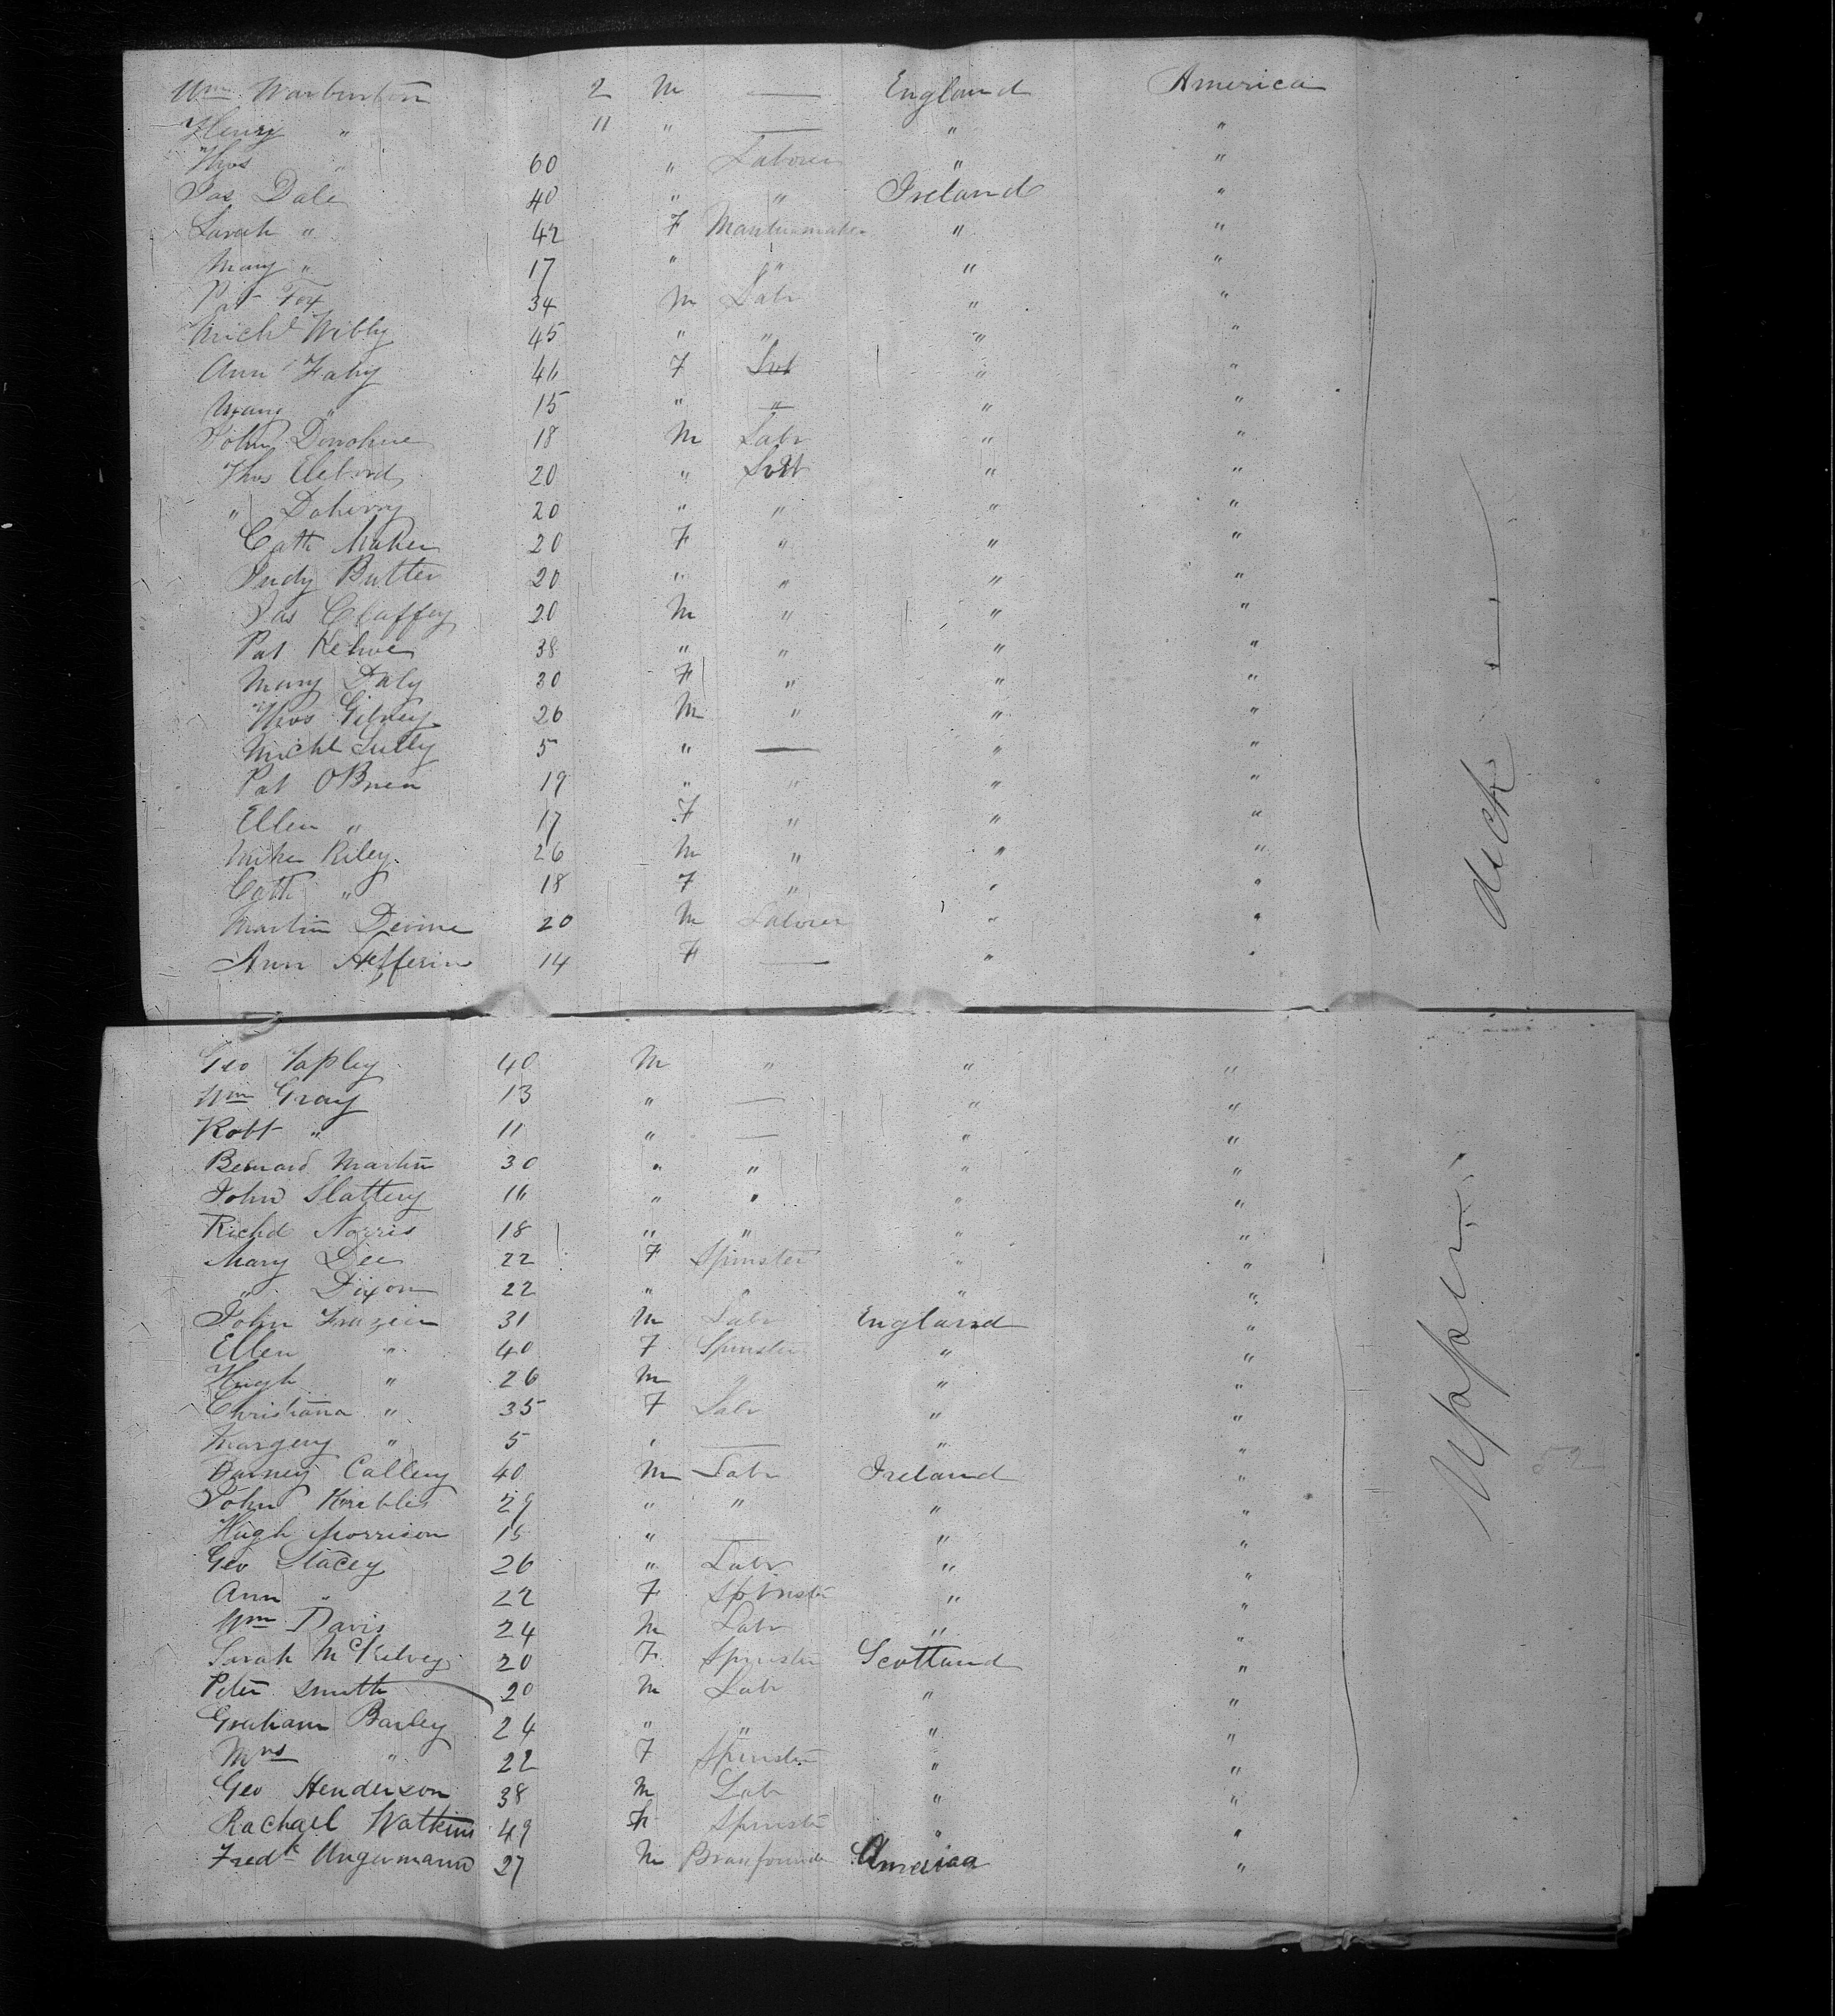 Wm Warburton 2 M — England America
Henry " 11 " — " "
Thos " 60 " Laborer " "
Jas Dale 40 " " Ireland "
Sarah " 42 F Mantuamaker " "
Mary " 17 " " " "
Pat Fox 34 M Labr " "
Michl Wibby 45 " " " "
Ann Fahy 46 F " "
Mary " 15 " " " "
John Donohue 18 M Labr " "
Thos 20 " " "
" Doherry 20 " " " "
Cath Maher 20 F " " "
Judy Butler 20 " " " "
Jas Claffey 20 M " " "
Pat Kehoe 38 " " " "
Mary Daly 30 F " " "
Thos Gibney 26 M " " "
Michl Lully 5 " — " "
Pat OBrien 19 " " " "
Ellen " 17 F " " "
Mike Riley 26 M " " "
Cath " 18 F " " "
Martin Devine 20 M Laborer " "
Ann Hefferin 14 F — " "
deck
Geo Tapley 40 M " " "
Wm Gray 13 " — " "
Robt " 11 " — " "
Bernard Martin 30 " " " "
John Slattery 16 " " " "
Richd Norris 18 " " " "
Mary Lee 22 F Spinster " "
" Dixon 22 " " "
John Frazier 31 M Labr England "
Ellen " 40 F Spinster " "
Hugh " 26 M " "
Christiana " 35 F Labr " "
Margery " 5 " — " "
Barney Callery 40 M Labr Ireland "
John Kribbs 29 " " " "
Hugh Morrison 15 " — " "
Geo Stacey 26 " Labr " "
Ann " 22 F Spinster " "
Wm Davis 24 M Labr " "
Sarah McKelvey 20 F Spinster Scotland "
Peter Smith 20 M Labr " "
Graham Barley 24 " " " "
Mrs " 22 F Spinster " "
Geo Henderson 38 M Labr " "
Rachael Watkins 49 F Spinster " "
Fredk Ungermann 27 M Brassfounder America "
Upper